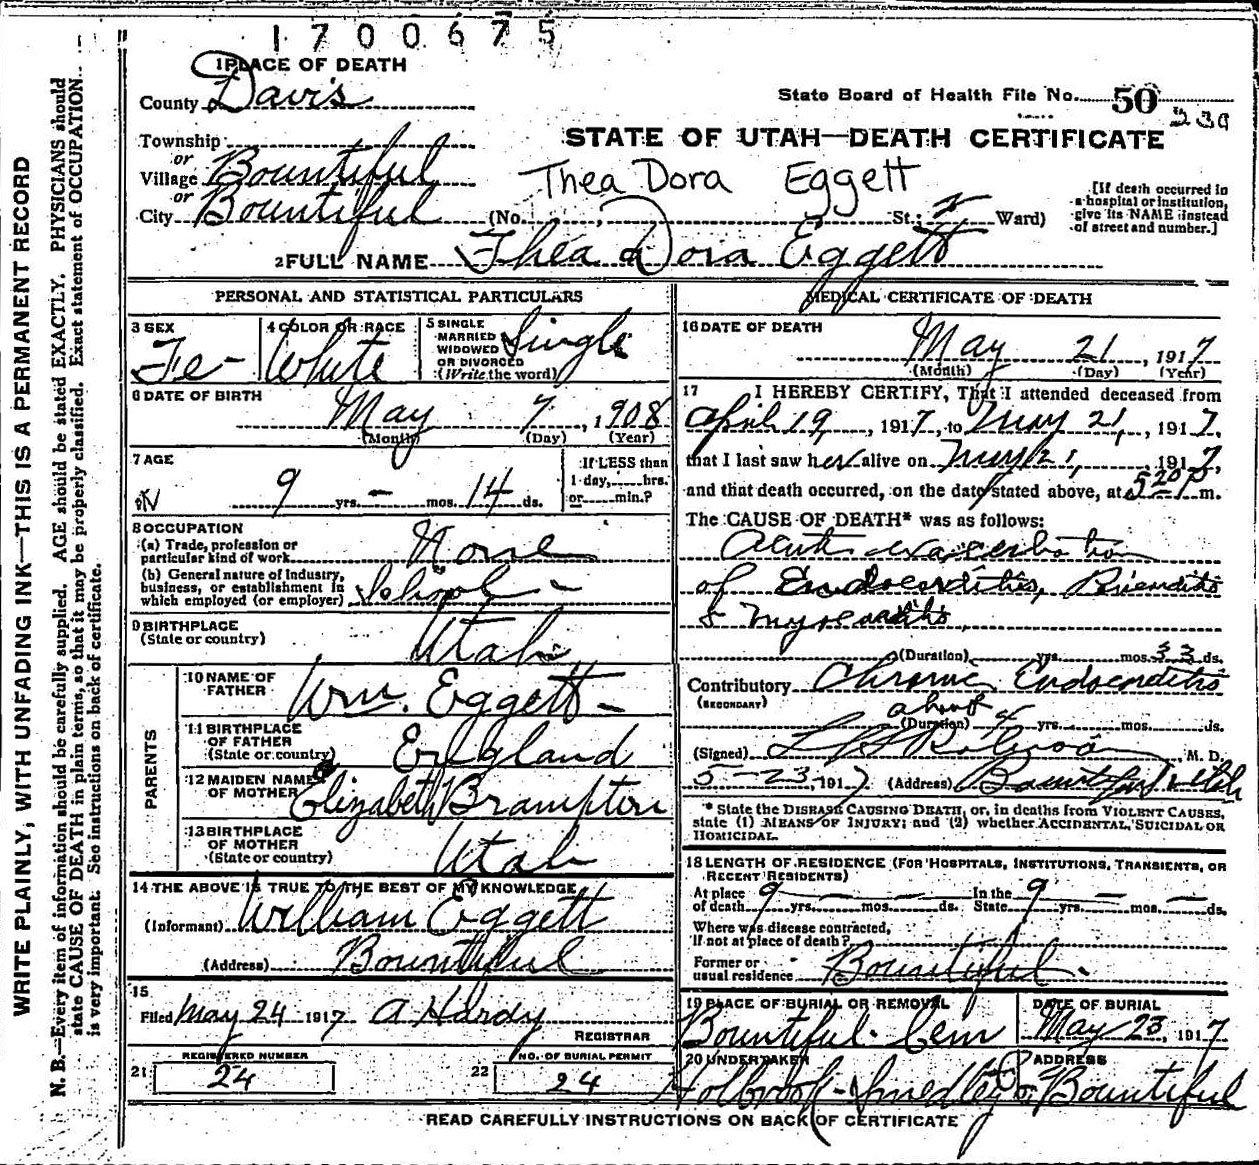 1700675
1 PLACE OF DEATH
County Davis
State Board of Health File No. 50
239
Township
STATE OF UTAH—DEATH CERTIFICATE
or
Village Bountiful
Thea Dora Eggett
or
City Bountiful (No. St.; 2 Ward)
[If death occurred in
a hospital or institution,
give its NAME instead
of street and number.]
2 FULL NAME Thea Dora Eggett
PERSONAL AND STATISTICAL PARTICULARS
3 SEX
Fe-
4 COLOR OR RACE
White
5 SINGLE
MARRIED
WIDOWED
OR DIVORCED
(Write the word)
Single
6 DATE OF BIRTH
May 7, 1908
(Month) (Day) (Year)
7 AGE
9 yrs. — mos. 14 ds.
If LESS than
1 day, hrs.
or min.?
8 OCCUPATION
(a) Trade, profession or
particular kind of work None
(b) General nature of Industry,
business, or establishment in
which employed (or employer) School -
9 BIRTHPLACE
(State or country) Utah
PARENTS
10 NAME OF
FATHER Wm. Eggett -
11 BIRTHPLACE
OF FATHER
(State or country) England
12 MAIDEN NAME
OF MOTHER Elizabeth Brampton
13 BIRTHPLACE
OF MOTHER
(State or country) Utah
14 THE ABOVE IS TRUE TO THE BEST OF MY KNOWLEDGE
(Informant) William Eggett
(Address) Bountiful
15
Filed May 24 1917 A Hardy
REGISTRAR
REGISTERED NUMBER
21 24
NO. OF BURIAL PERMIT
22 24
MEDICAL CERTIFICATE OF DEATH
16 DATE OF DEATH
May 21, 1917
(Month) (Day) (Year)
17 I HEREBY CERTIFY, That I attended deceased from
April 19, 1917, to May 21, 1917,
that I last saw her alive on May 21, 1917,
and that death occurred, on the date stated above, at 5 20 P m.
The CAUSE OF DEATH* was as follows:
Acute exacerbation
of Endocarditis,
& Myocarditis,
(Duration) yrs. mos. 33 ds.
Contributory Chronic Endocarditis
(SECONDARY)
about
(Duration) 4 yrs. mos. ds.
(Signed) Robinson M. D.
5-23, 1917 (Address) Bountiful Utah
* State the DISEASE CAUSING DEATH, or, in deaths from VIOLENT CAUSES,
state (1) MEANS OF INJURY; and (2) whether ACCIDENTAL, SUICIDAL OR
HOMICIDAL.
18 LENGTH OF RESIDENCE (FOR HOSPITALS, INSTITUTIONS, TRANSIENTS, OR
RECENT RESIDENTS)
At place
of death 9 yrs. — mos. — ds. In the
State 9 yrs. — mos. — ds.
Where was disease contracted,
If not at place of death?
Former or
usual residence Bountiful.
19 PLACE OF BURIAL OR REMOVAL
Bountiful Cem
DATE OF BURIAL
May 23, 1917
20 UNDERTAKER
Holbrook-Smedley Co.
ADDRESS
Bountiful
READ CAREFULLY INSTRUCTIONS ON BACK OF CERTIFICATE
WRITE PLAINLY, WITH UNFADING INK—THIS IS A PERMANENT RECORD
N. B.—Every item of information should be carefully supplied. AGE should be stated EXACTLY. PHYSICIANS should
state CAUSE OF DEATH in plain terms, so that it may be properly classified. Exact statement of OCCUPATION
is very important. See instructions on back of certificate.